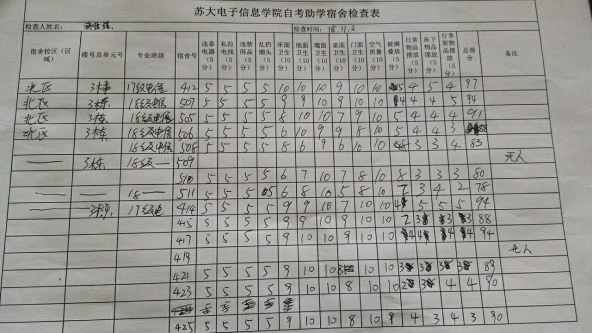 苏大电子信息学院自考助学宿舍检查表
检查人姓名: 检查时间: 18.11.2
宿舍校区(区域) 楼号及单元号 专业班级 宿舍号 违章电器(5分) 私拉电线(5分) 违禁用品(5分) 乱扔烟头(5分) 床面卫生(10分) 地面卫生(10分) 墙面卫生(10分) 桌面卫生(10分) 门窗卫生(10分) 空气质量(10分) 被褥叠放(5分) 日常物品摆放(5分) 床下物品摆放(5分) 行李架物品摆放(5分) 总得分 备注
北区 3栋 17级电信 412 5 5 5 5 10 10 10 9 10 10 5 4 5 4 97
北区 3栋 18级电信 507 5 5 5 5 9 9 10 9 10 10 4 4 5 94
北区 3栋 18级电信 505 5 5 5 5 8 10 10 7 9 10 5 4 4 4 91
北区 3栋 18级电信 506 5 5 5 5 6 10 9 9 8 10 5 4 4 3
18级电信 508 5 5 5 5 8 6 9 6 10 10 3 3 4 83
3栋 18级 509 无人
510 5 5 5 5 6 7 10 7 8 10 8 3 3 3 80
18 511 5 5 5 5 6 8 10 5 8 10 2 3 4 2 78
3栋 17级电 414 5 5 5 5 9 9 10 7 10 10 4 5 5 5 94
415 5 5 5 5 9 9 10 9 10 10 2 3 3 3 88
417 5 5 5 5 9 10 10 9 10 10 4 4 4 94
419 无人
421 5 5 5 5 9 10 10 10 10 3 3 3 3
423 5 5 5 5 9 10 10 8 10 10 4 4 90
425 5 5 5 5 9 10 10 8 10 4 3 4 3 90